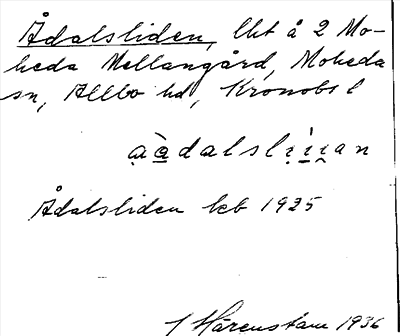 Ådalsliden, lht å 2 Mo-
heda Mellangård, Moheda
sn, Allbo hd, Kronobs l
Ådalsliden kb 1925
J Hårenstam 1936